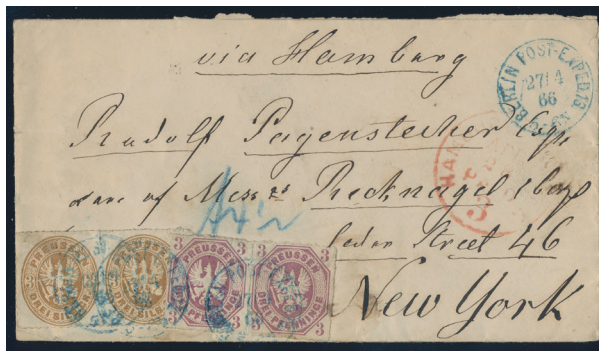 via Hamburg
BERLIN POST-EXPED.13
27/4
66
5-6N
Rudolf Pagenstecher Esqr
care of Messrs Recknagel &
HAM
Cedar Street 46
New York
PREUSSEN
3
DREI SILB.
PREUSSEN
3
DREI SILB.
3 3
PREUSSEN
DREI PFENNINGE
3 3
PREUSSEN
DREI PFENNINGE
3